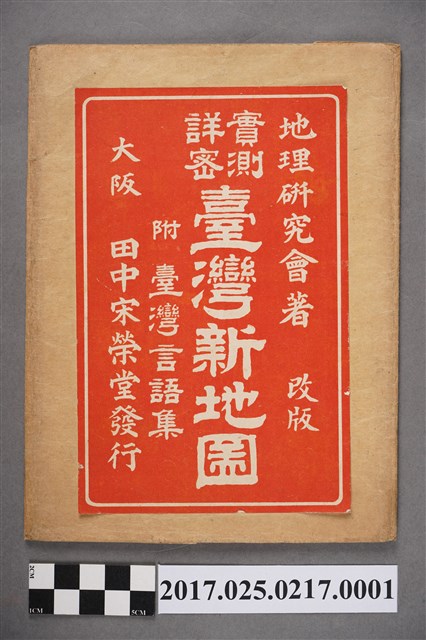 地理硏究會著 改版
實測
詳密
臺灣新地圖
附 臺灣言語集
大阪 田中宋榮堂發行
2CM
1CM
5CM
2017.025.0217.0001